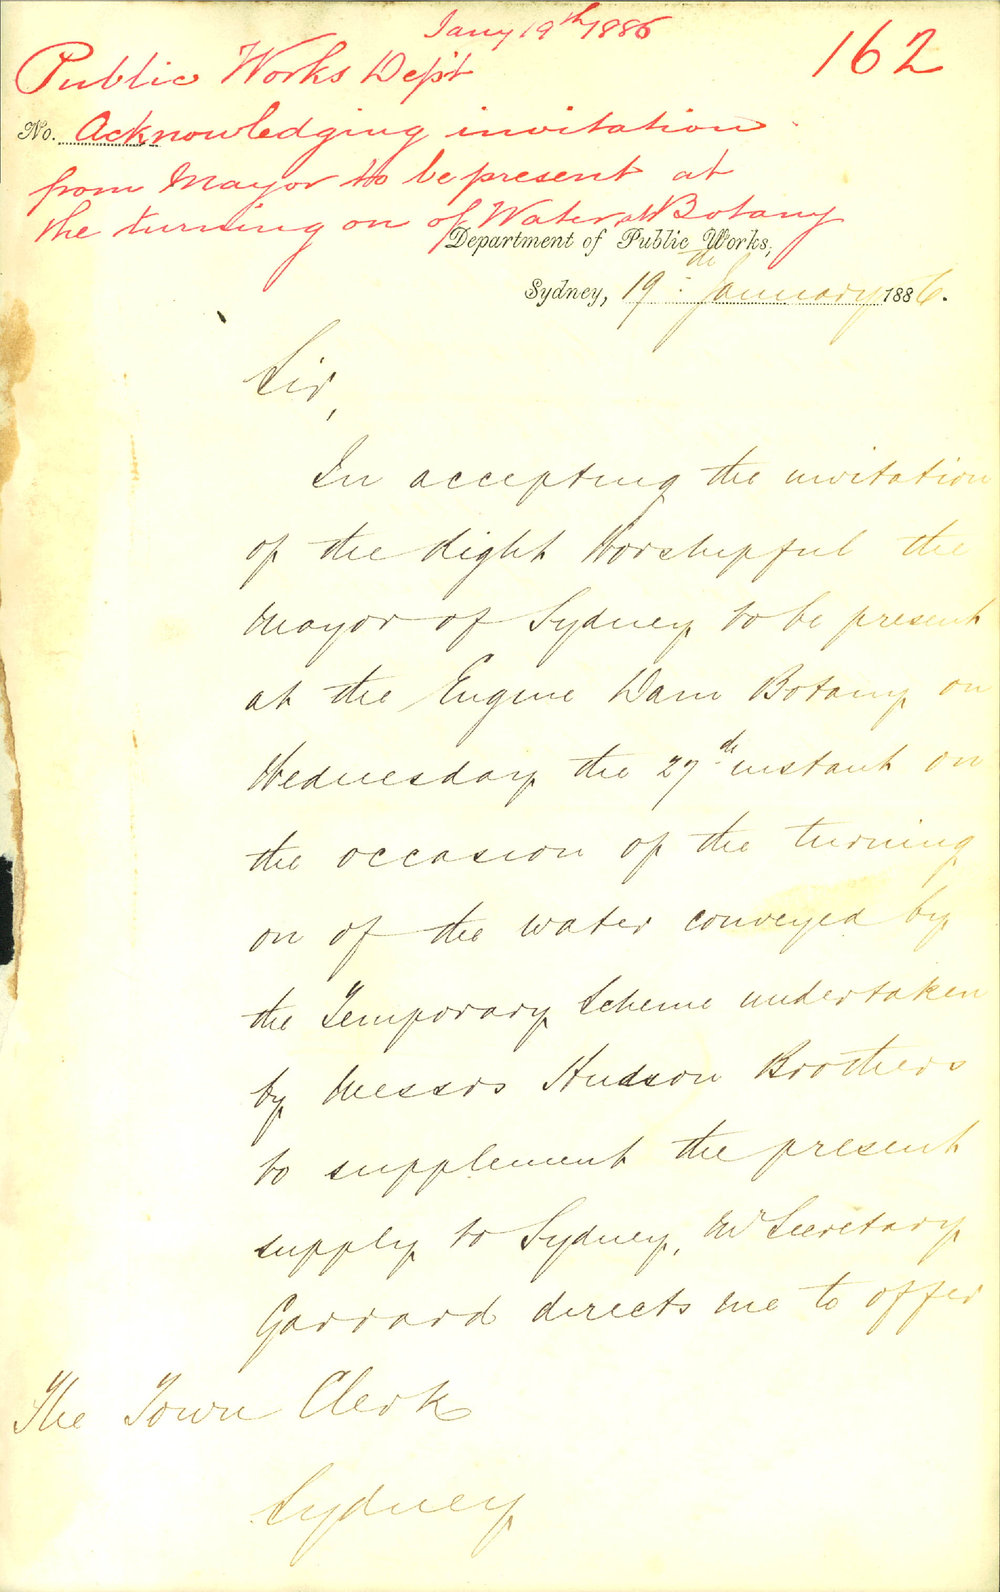 Jany 19th 1886
162
Public Works Dept
No. Acknowledging invitation
from Mayor to be present at
the turning on of Water at Botany
Department of Public Works,
Sydney, 19th January 1886.
Sir,
In accepting the invitation
of the Right Worshipful the
Mayor of Sydney to be present
at the Engine Dam Botany on
Wednesday the 27th instant on
the occasion of the turning
on of the water conveyed by
the Temporary Scheme undertaken
by Messrs Hudson Brothers
to supplement the present
supply to Sydney, Mr Secretary
Garrard directs me to offer
The Town Clerk
Sydney